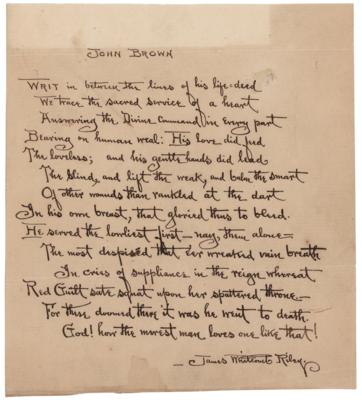 JOHN BROWN
WRIT in between the lines of his life-deed
We trace the sacred service of a heart
Answering the Divine Command, in every part
Bearing on human weal: His love did feed
The loveless; and his gentle hands did lead
The blind, and lift the weak, and balm the smart
Of other wounds than rankled at the dart
In his own breast, that gloried thus to bleed.
He served the lowliest first—nay, them alone—
The most despised that e'er wreaked vain breath
In cries of suppliance in the reign whereat
Red Guilt sate squat upon her spattered throne.—
For these doomed there it was he went to death.
God! how the merest man loves one like that!
—James Whitcomb Riley.